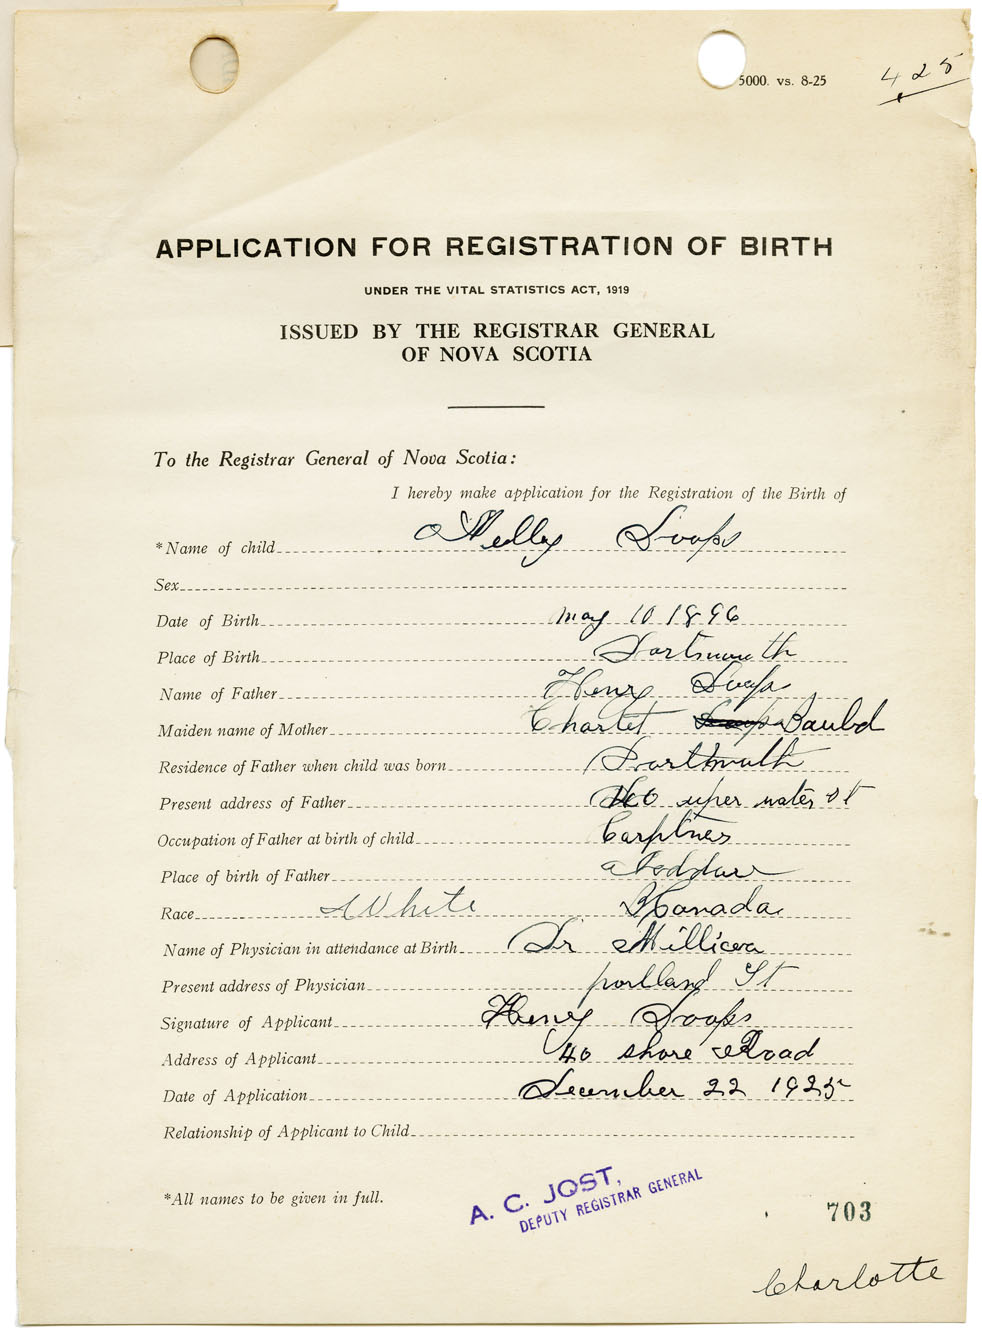 5000. vs. 8-25
425
APPLICATION FOR REGISTRATION OF BIRTH
UNDER THE VITAL STATISTICS ACT, 1919
ISSUED BY THE REGISTRAR GENERAL
OF NOVA SCOTIA
To the Registrar General of Nova Scotia:
I hereby make application for the Registration of the Birth of
*Name of child Medley Soops
Sex
Date of Birth may 10 1896
Place of Birth Dartmouth
Name of Father Henry Soops
Maiden name of Mother Charlet Bauld
Residence of Father when child was born Dartmuth
Present address of Father uper water st
Occupation of Father at birth of child Carptners
Place of birth of Father
Race White Canada
Name of Physician in attendance at Birth Dr
Present address of Physician portland St
Signature of Applicant Henry Soops
Address of Applicant 40 shore Road
Date of Application December 22 1925
Relationship of Applicant to Child
*All names to be given in full.
A. C. JOST,
DEPUTY REGISTRAR GENERAL
703
Charlotte